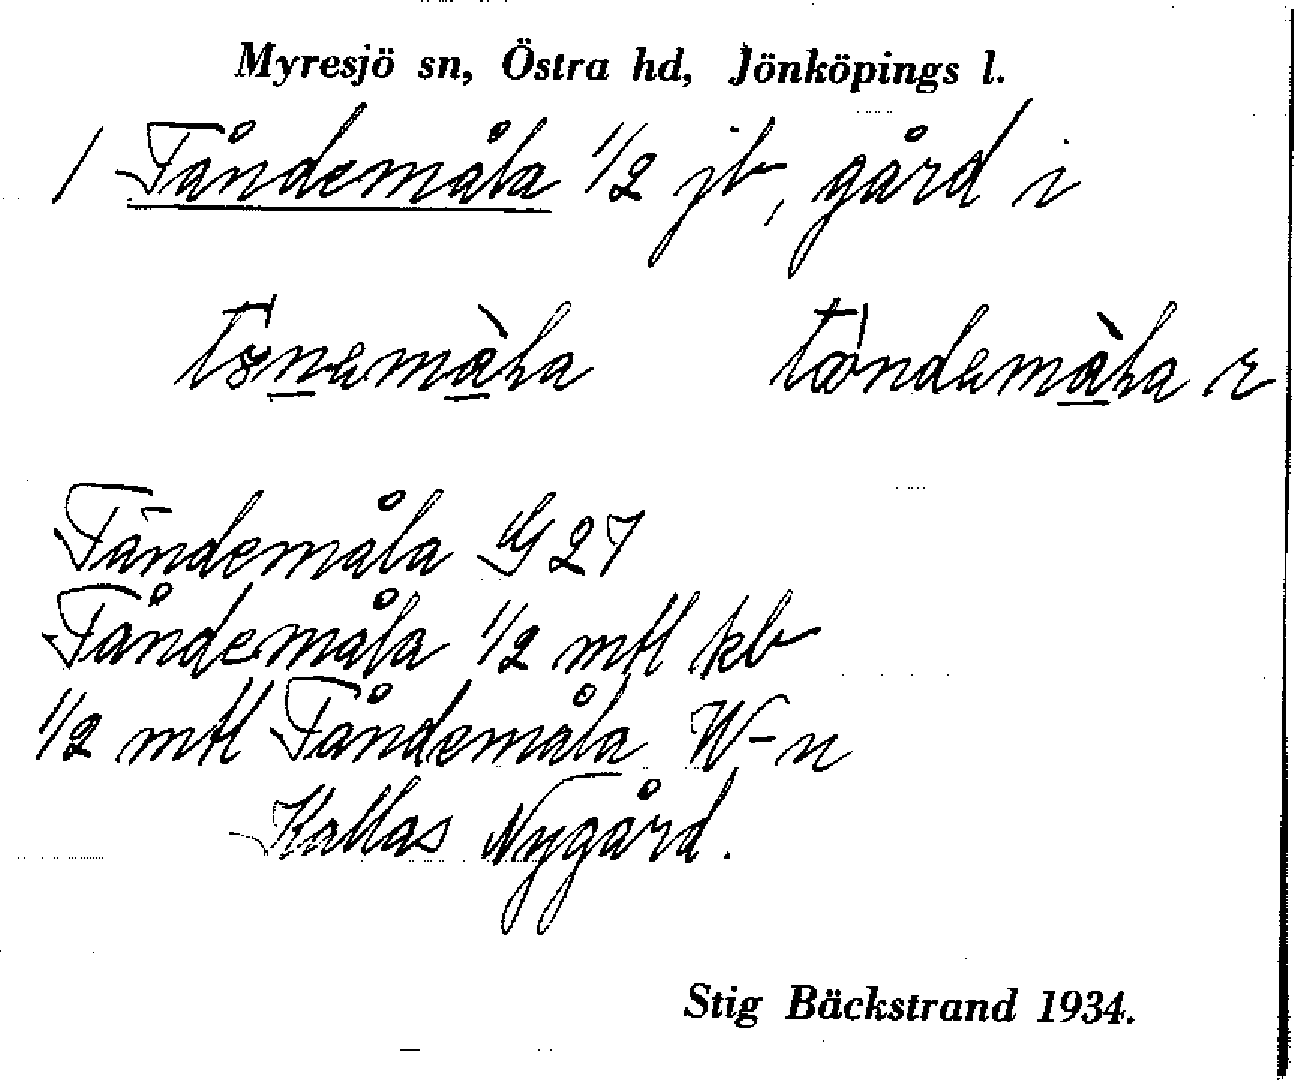 Myresjö sn, Östra hd, Jönköpings l.
1 Tåndemåla 1/2 jb, gård i
tåndemåla r
Tåndemåla GS 27
Tåndemåla 1/2 mtl kb
1/2 mtl Tåndemåla W-n
Kallas Nygård.
Stig Bäckstrand 1934.